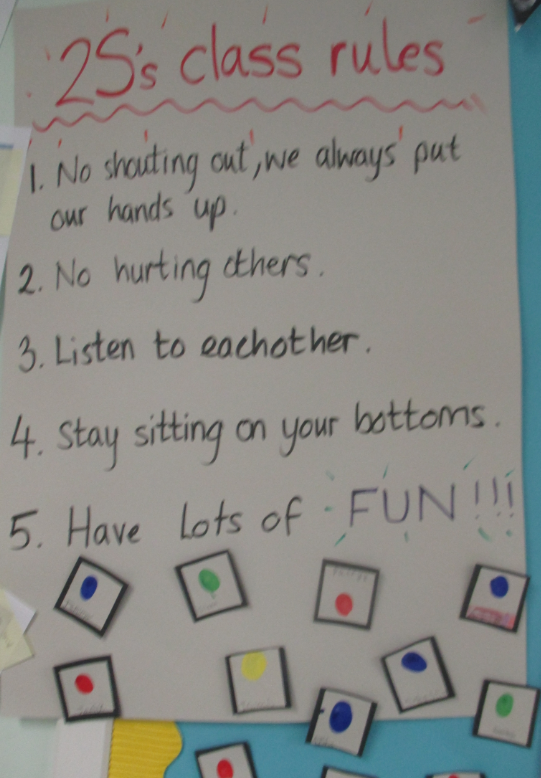 2S's class rules
1. No shouting out, we always put
our hands up.
2. No hurting others.
3. Listen to eachother.
4. Stay sitting on your bottoms.
5. Have Lots of FUN!!!